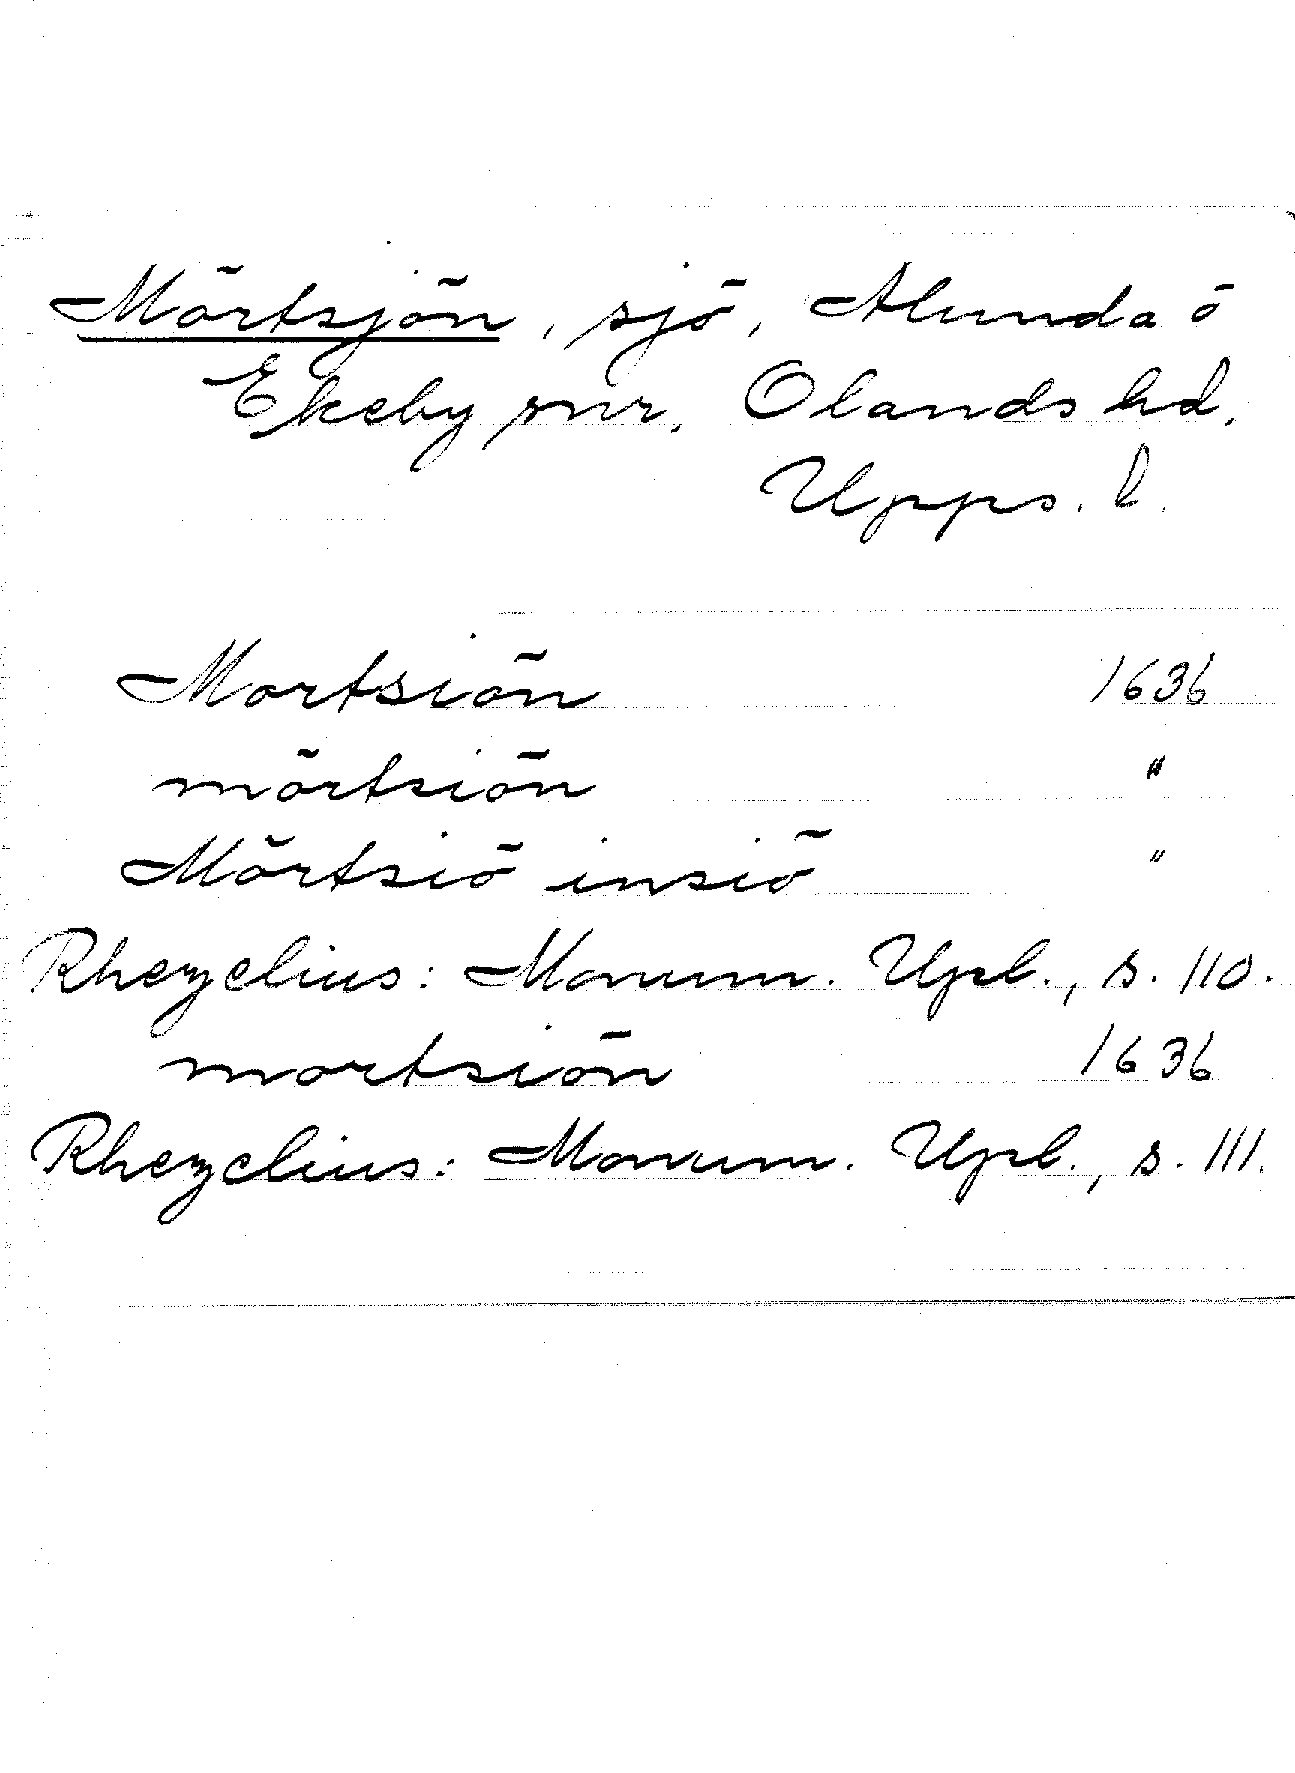 Mörtsjön, sjö, Alunda o
Ekeby snr. Olands hd,
Upps. l.
Mortsiön 1636
mörtsiön "
Mörtsiö insiö "
Rhezelius: Monum. Upl., s. 110.
mortsiön 1636
Rhezelius: Monum. Upl., s. 111.